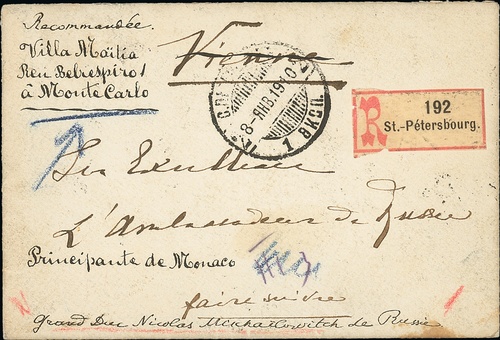 Recommandée.
Villa Maïlia
Reu Belrespiro 1
à Monte Carlo
Vienne
8-ЯНВ.19
1 ЭКСП.
R
192
St.-Pétersbourg.
Son Excellence
L'Ambassadeur de Russie
Principante de Monaco
faire suivre
Grand Duc Nicolas Mickhaïlowitch de Russie